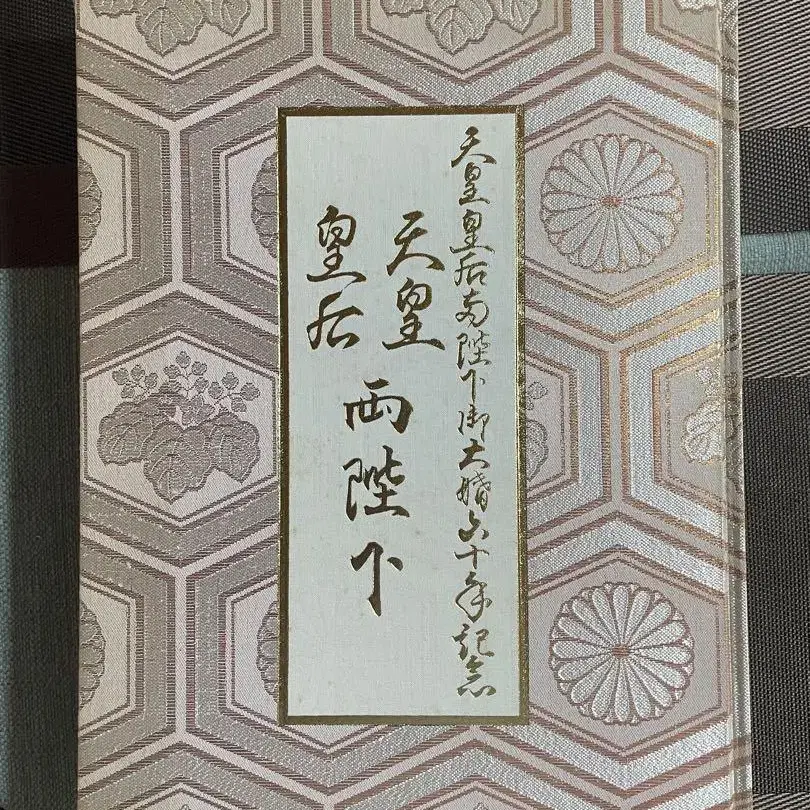 天皇皇后両陛下御大婚六十年記念
天皇
皇后
両陛下